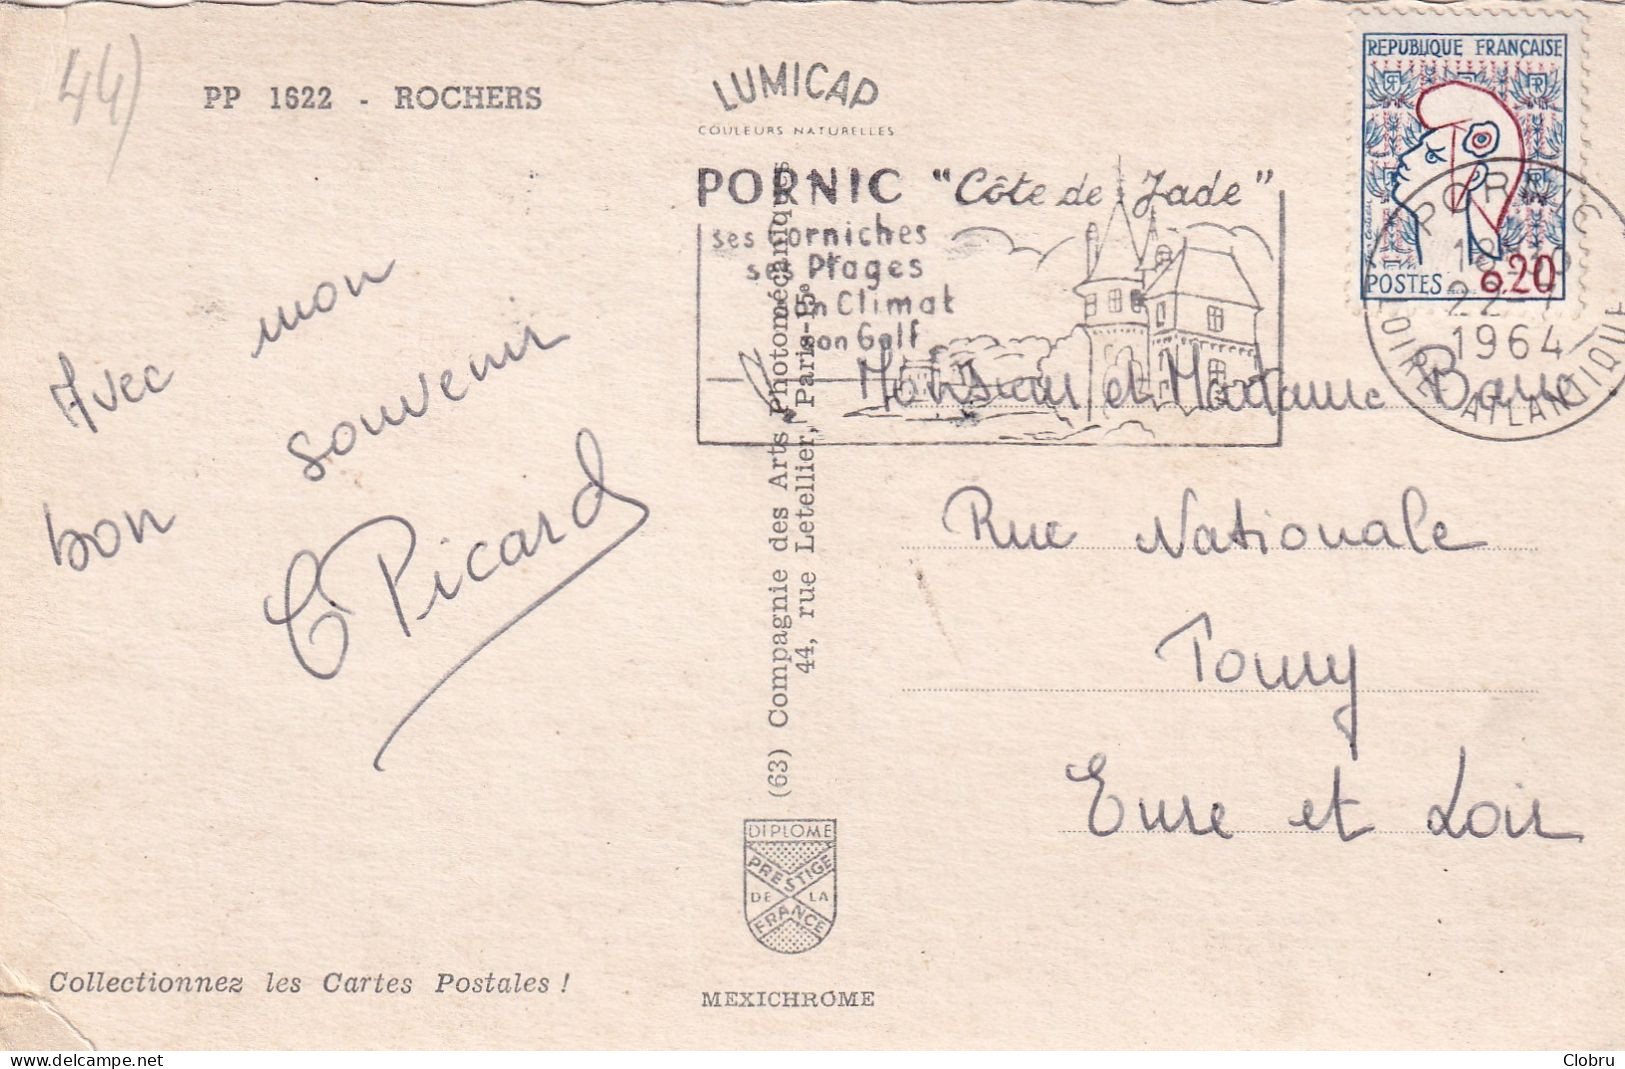 44)
PP 1622 - ROCHERS
LUMICAP
COULEURS NATURELLES
PORNIC "Côte de Jade"
ses Corniches
ses Plages
un Climat
son Golf
REPUBLIQUE FRANÇAISE
POSTES 0,20
PORNIC
22-7
1964
LOIRE ATLANTIQUE
Avec mon
bon souvenir
C Picard
Monsieur et Madame
Rue Nationale
Toury
Eure et Loir
(63) Compagnie des Arts Photomécaniques
44, rue Letellier, Paris-15e
DIPLOME
PRESTIGE
DE LA
FRANCE
Collectionnez les Cartes Postales !
MEXICHROME
Clobru